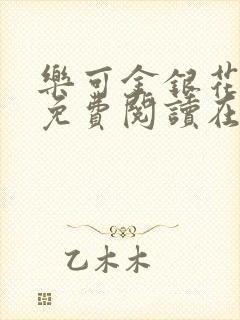 樂可金銀花
免費閱讀在
乙木木